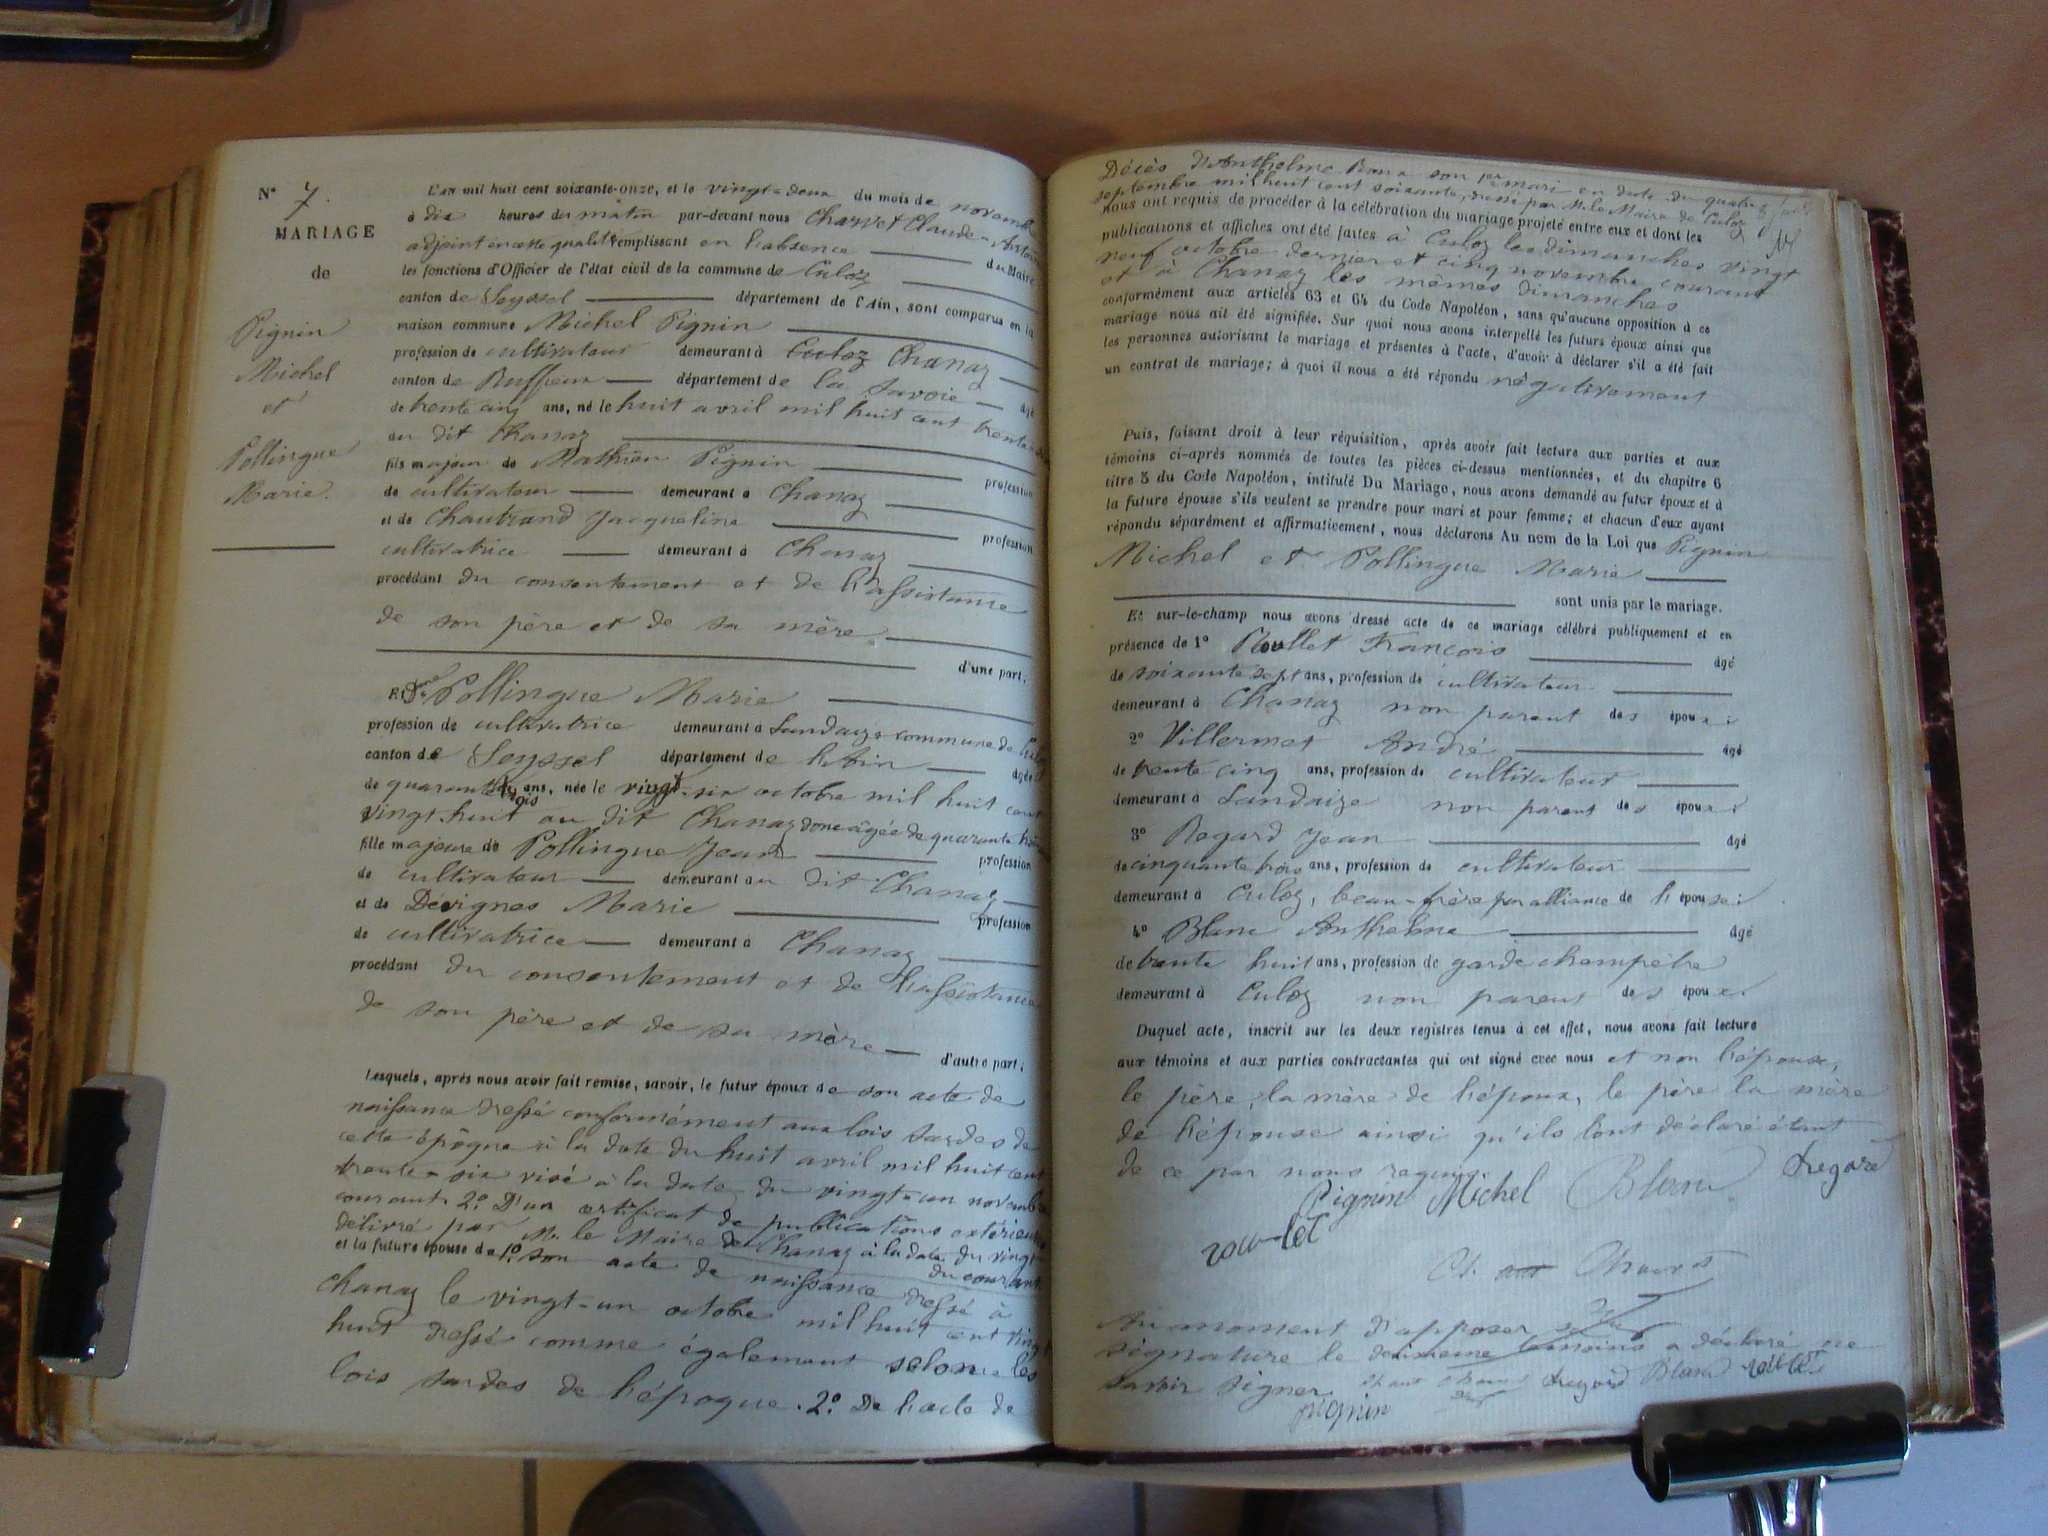 N° 7.
MARIAGE
de
Pignin
Michel
et
Pollingue
Marie.
L'an mil huit cent soixante-onze, et le vingt-deux du mois de novembre
à dix heures du matin par-devant nous Charvet Claude-Antoine
adjoint en cette qualité remplissant en l'absence du Maire
les fonctions d'Officier de l'état civil de la commune de Culoz
canton de Seyssel département de l'Ain, sont comparus en la
maison commune Michel Pignin
profession de cultivateur demeurant à Culoz Chanaz
canton de Ruffieux département de la Savoie âgé
de trente cinq ans, né le huit avril mil huit cent trente-six
au dit Chanaz
fils majeur de Mathieu Pignin profession
de cultivateur demeurant à Chanaz
et de Chautrand Jacqueline profession
cultivatrice demeurant à Chanaz
procédant du consentement et de l'assistance
de son père et de sa mère
d'une part;
Et Pollingue Marie
profession de cultivatrice demeurant à Landaize commune de Culoz
canton de Seyssel département de l'Ain âgée
de quarante trois ans, née le vingt-six octobre mil huit cent
vingt huit au dit Chanaz donc âgée de quarante trois
fille majeure de Pollingue Jean profession
de cultivateur demeurant au dit Chanaz
et de Dévignes Marie profession
de cultivatrice demeurant à Chanaz
procédant du consentement et de l'assistance
de son père et de sa mère
d'autre part;
Lesquels, après nous avoir fait remise, savoir, le futur époux de son acte de
naissance dressé conformément aux lois sardes de
cette époque à la date du huit avril mil huit cent
trente-six visé à la date du vingt-un novembre
courant. 2° D'un certificat de publications extérieures
délivré par M. le Maire de Chanaz à la date du vingt
du courant
et la future épouse de 1° son acte de naissance dressé à
chanaz le vingt-un octobre mil huit cent vingt
huit dressé comme également selon les
lois sardes de l'époque. 2° De l'acte de
Décès d'Anthelme Roux son 1er mari en date du quatre
septembre mil huit cent soixante, dressé par M. le Maire de Culoz
nous ont requis de procéder à la célébration du mariage projeté entre eux et dont les
publications et affiches ont été faites à Culoz les dimanches vingt
neuf octobre dernier et cinq novembre courant
et à Chanaz les mêmes dimanches
conformément aux articles 63 et 64 du Code Napoléon, sans qu'aucune opposition à ce
mariage nous ait été signifiée. Sur quoi nous avons interpellé les futurs époux ainsi que
les personnes autorisant le mariage et présentes à l'acte, d'avoir à déclarer s'il a été fait
un contrat de mariage; à quoi il nous a été répondu négativement
Puis, faisant droit à leur réquisition, après avoir fait lecture aux parties et aux
témoins ci-après nommés de toutes les pièces ci-dessus mentionnées, et du chapitre 6
titre 5 du Code Napoléon, intitulé Du Mariage, nous avons demandé au futur époux et à
la future épouse s'ils veulent se prendre pour mari et pour femme; et chacun d'eux ayant
répondu séparément et affirmativement, nous déclarons Au nom de la Loi que Pignin
Michel et Pollingue Marie
sont unis par le mariage.
Et sur-le-champ nous avons dressé acte de ce mariage célébré publiquement et en
présence de 1° Roullet François âgé
de soixante sept ans, profession de cultivateur
demeurant à Chanaz non parent des époux;
2° Villermet André âgé
de trente cinq ans, profession de cultivateur
demeurant à Landaize non parent des époux;
3° Regard Jean âgé
de cinquante trois ans, profession de cultivateur
demeurant à Culoz, beau-frère par alliance de l'épouse;
4° Blanc Anthelme âgé
de trente huit ans, profession de garde champêtre
demeurant à Culoz non parent des époux.
Duquel acte, inscrit sur les deux registres tenus à cet effet, nous avons fait lecture
aux témoins et aux parties contractantes qui ont signé avec nous et non l'épouse,
le père, la mère de l'époux, le père la mère
de l'épouse ainsi qu'ils l'ont déclaré étant
de ce par nous requis.
Pignin Michel Blanc Regard
roullet
Ct. Charvet
Au moment d'apposer sa
signature le deuxième témoin a déclaré ne
savoir signer. Regard Blanc roullet
pignin